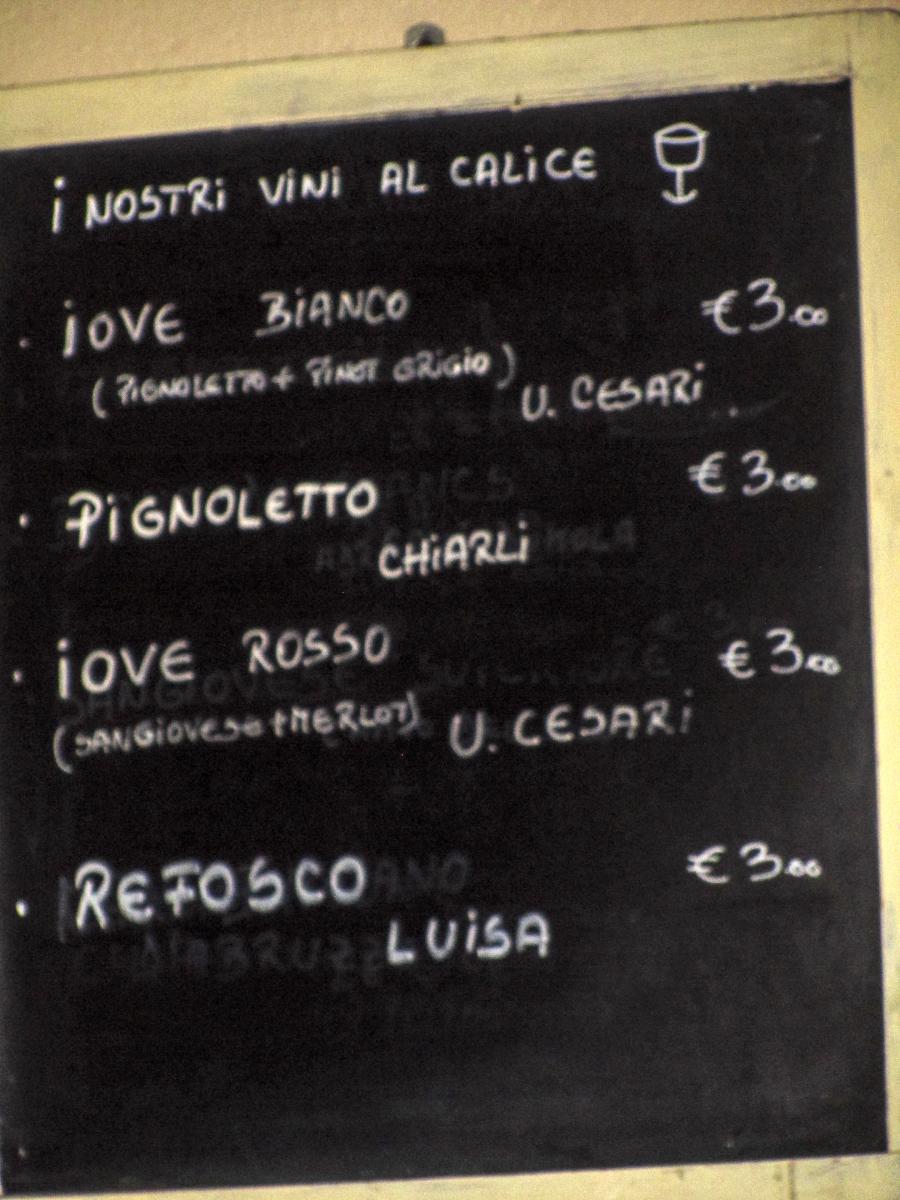 i NOSTRi ViNi AL CALiCE
· iOVE BiANCO €3.00
(PiGNOLETTO + PiNOT GRiGiO)
U. CESARi
· PiGNOLETTO €3.00
CHiARLi
· iOVE ROSSO €3.00
(SANGiOVESE + MERLOT) U. CESARi
· REFOSCO €3.00
LUiSA